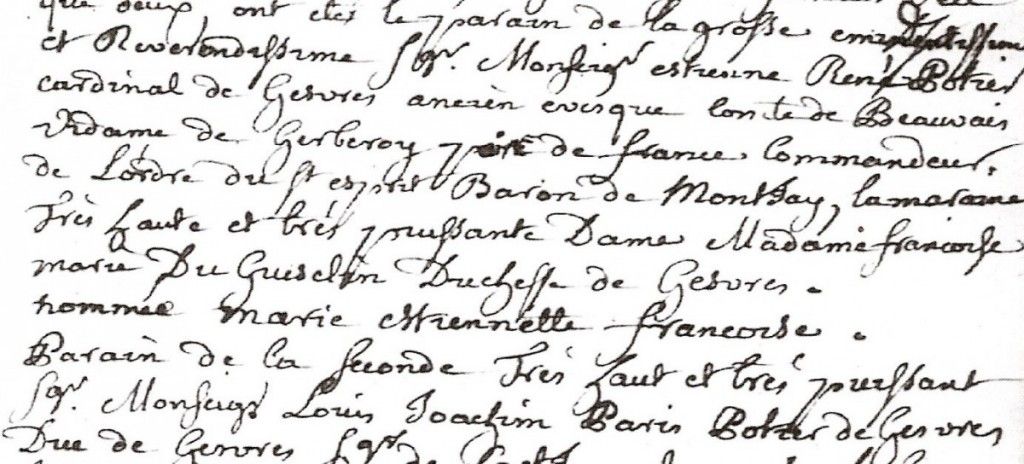 que deux, ont etes le parain de la grosse eminentissime
et Reverendissime Sgr. Monseigr estienne René Potier
cardinal de Gesvres ancien evesque Comte de Beauvais
Vidame de Gerberoy pair de france Commandeur
de L'ordre du St esprit Baron de Montjay, la maraine
Très haute et très puissante Dame Madame francoise
marie Du Guesclin Duchesse de Gesvres.
nommée marie estiennette francoise.
Parain de la seconde Très haut et très puissant
Sgr. Monseigr Louis Joachim Paris Potier de Gesvres
Duc de Gesvres Sgr de